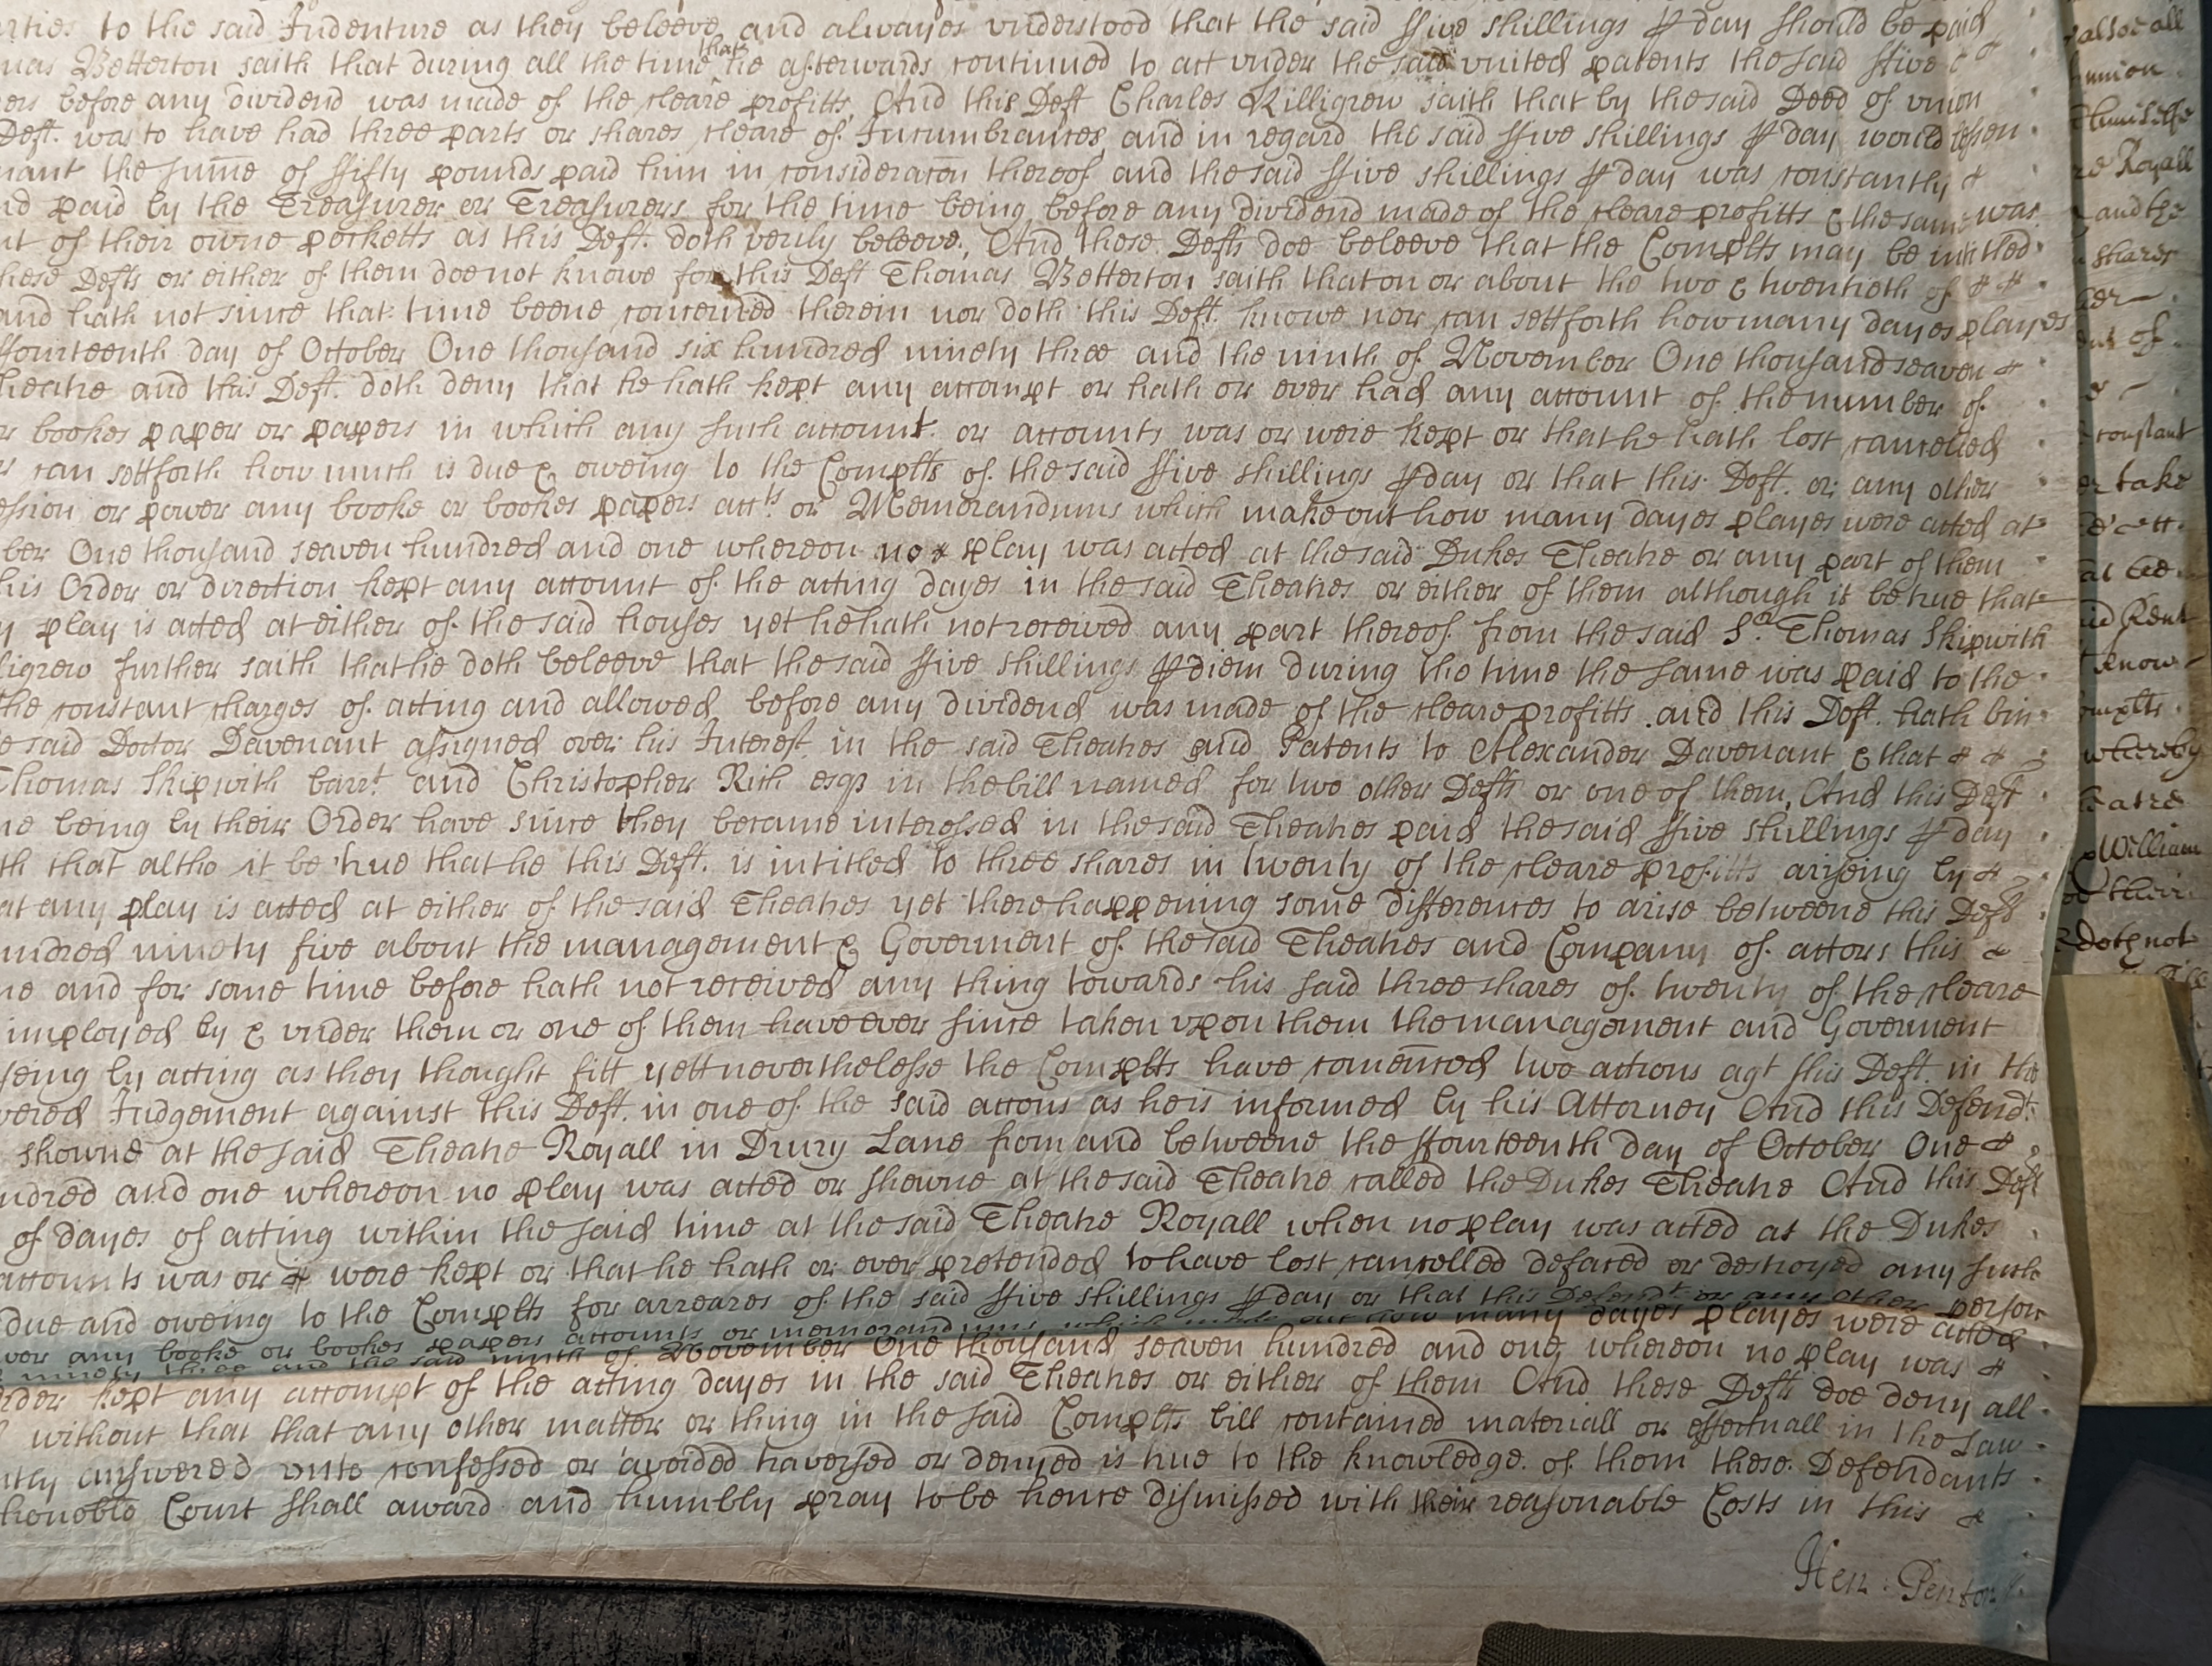 rties to the said Indenture as they beleeve and alwayes understood that the said ffive shillings ⅌ day should be paid
mas Betterton saith that during all the time that he afterwards continued to act under the said united patents the said ffive
ers before any dividend was made of the cleare profitts, And this Deft Charles Killigrew saith that by the said Deed of union
Deft. was to have had three parts or shares cleare of Incumbrances and in regard the said ffive shillings ⅌ day would lessen
nant the sume of ffifty pounds paid him in consideracon thereof and the said ffive shillings ⅌ day was constantly &
nd paid by the Treasurer or Treasurers for the time being before any dividend made of the cleare profitts & the same was
ut of their owne pocketts as this Deft. doth verily beleeve, And these Defts doe beleeve that the Complts may be intitled
hese Defts or either of them doe not knowe for this Deft Thomas Betterton saith that on or about the two & twentieth of & &
and hath not since that time beene concerned therein nor doth this Deft. knowe nor can settforth how many dayes playes
ffourteenth day of October One thousand six hundred ninety three and the ninth of November One thousand seaven &
heatre and this Deft. doth deny that he hath kept any accompt or hath or ever had any account of the number of
r bookes paper or papers in which any such account or accounts was or were kept or that he hath lost cancelled
r can settforth how much is due & oweing to the Complts of the said ffive shillings ⅌ day or that this Deft. or any other
ession or power any booke or bookes papers accts or Memorandums which make out how many dayes playes were acted at
ber One thousand seaven hundred and one whereon no & play was acted at the said Dukes Theatre or any part of them
his Order or direction kept any account of the acting dayes in the said Theatres or either of them although it be true that
y play is acted at either of the said houses yet he hath not received any part thereof from the said Sr. Thomas Skipwith
ligrew further saith that he doth beleeve that the said ffive shillings ⅌ diem during the time the same was paid to the
the constant charges of acting and allowed before any dividend was made of the cleare profitts and this Deft. hath bin
e said Doctor Davenant assigned over his Interest in the said Theatres and Patents to Alexander Davenant & that & &
Thomas Skipwith barrt. and Christopher Rich esqs in the bill named for two other Defts or one of them, And this Deft
me being by their Order have since they became interessed in the said Theatres paid the said ffive shillings ⅌ day
th that altho it be true that he this Deft. is intitled to three shares in twenty of the cleare profitts ariseing by &
at any play is acted at either of the said Theatres yet there happening some differences to arise betweene this Deft
undred ninety five about the management & Goverment of the said Theatres and Company of actors this &
me and for some time before hath not received any thing towards his said three shares of twenty of the cleare
imployed by & under them or one of them have ever since taken upon them the management and Goverment
seing by acting as they thought fitt yett neverthelesse the Complts have comenced two actions agt this Deft. in the
vered Judgement against this Deft. in one of the said accons as he is informed by his Attorney And this Defendt.
showne at the said Theatre Royall in Drury Lane from and betweene the ffourteenth day of October One &
undred and one whereon no play was acted or shewne at the said Theatre called the Dukes Theatre And this Deft
of dayes of acting within the said time at the said Theatre Royall when no play was acted at the Dukes
accounts was or & were kept or that he hath or ever pretended to have lost cancelled defaced or destroyed any such
due and oweing to the Complts for arreares of the said ffive shillings ⅌ day or that this Defendt. or any other person
wer any booke or bookes papers accounts or memorandums which make out how many dayes playes were acted
ninety three and the said ninth of November One thousand seaven hundred and one, whereon no play was &
rder kept any accompt of the acting dayes in the said Theatres or either of them And these Defts doe deny all
without that that any other matter or thing in the said Complts bill contained materiall or effectuall in the Law
ntly answered unto confessed or avoided traversed or denyed is true to the knowledge of them these Defendants
honoble Court shall award and humbly pray to be hence dismissed with their reasonable Costs in this &
Hen: Penton
also all
union
themselfe
re Royall
and the
shares
ent of
constant
er take
id Rent
know
omplts
whereby
eatre
William
or their
doth not